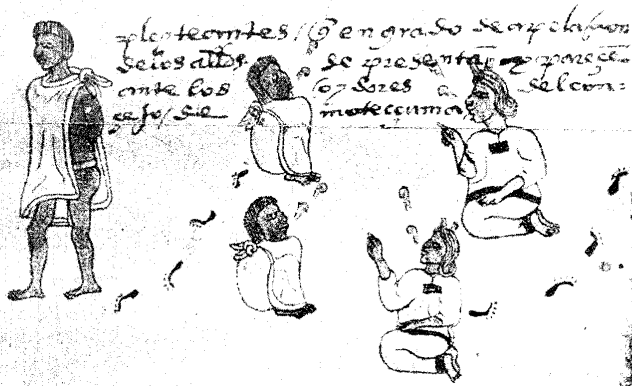 pleyteantes / q̄ en grado de apelaçion
de los allds. se presentā y pareçē
ante los oydores del con=
sejo / de moteccuma